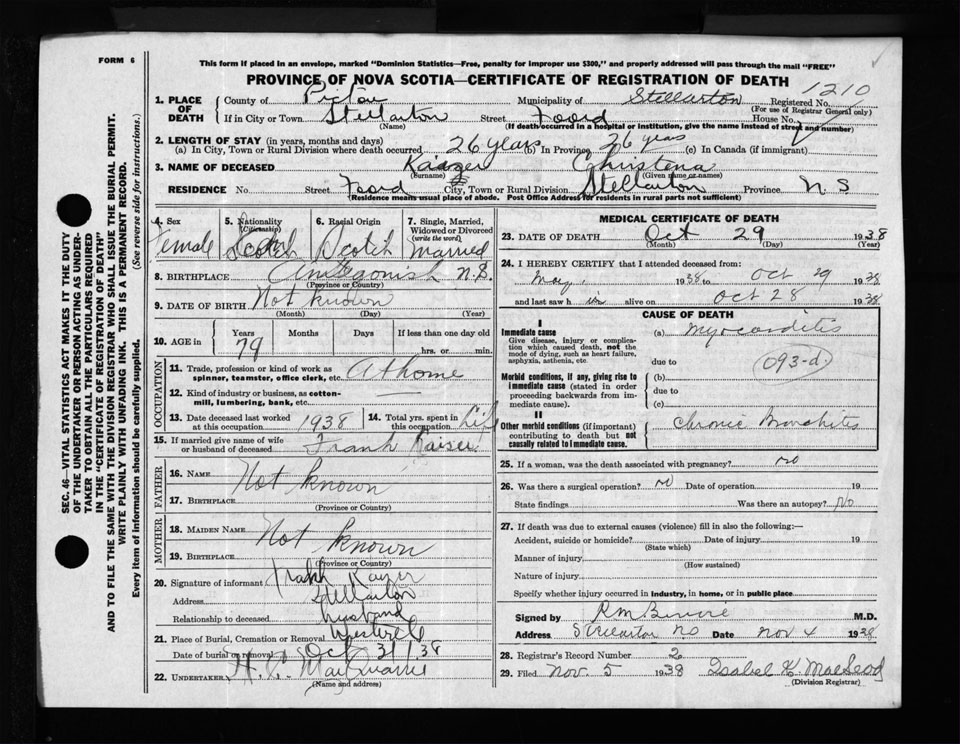 FORM 6
This form if placed in an envelope, marked "Dominion Statistics—Free, penalty for improper use $300," and properly addressed will pass through the mail "FREE"
PROVINCE OF NOVA SCOTIA—CERTIFICATE OF REGISTRATION OF DEATH
1210
1. PLACE OF DEATH County of Pictou Municipality of Stellarton Registered No.
(For use of Registrar General only)
If in City or Town Stellarton Street Foord House No.
(Name) (If death occurred in a hospital or institution, give the name instead of street and number)
2. LENGTH OF STAY (in years, months and days)
(a) In City, Town or Rural Division where death occurred 26 years (b) In Province 26 years (c) In Canada (if immigrant)
3. NAME OF DECEASED Kaizer Christena
(Surname) (Given name or names)
RESIDENCE No. Street Foord City, Town or Rural Division Stellarton Province N S
(Residence means usual place of abode. Post Office Address for residents in rural parts not sufficient)
4. Sex Female
5. Nationality (Citizenship) Scotch
6. Racial Origin Scotch
7. Single, Married, Widowed or Divorced (write the word) Married
8. BIRTHPLACE Antigonish N.S.
(Province or Country)
9. DATE OF BIRTH Not known
(Month) (Day) (Year)
10. AGE in Years Months Days If less than one day old
79 hrs. or min.
OCCUPATION
11. Trade, profession or kind of work as spinner, teamster, office clerk, etc. At home
12. Kind of industry or business, as cotton-mill, lumbering, bank, etc.
13. Date deceased last worked at this occupation 1938
14. Total yrs. spent in this occupation Life
15. If married give name of wife or husband of deceased Frank Kaiser
FATHER
16. NAME Not known
17. BIRTHPLACE
(Province or Country)
MOTHER
18. MAIDEN NAME Not known
19. BIRTHPLACE
(Province or Country)
20. Signature of informant Frank Kaizer
Address Stellarton
Relationship to deceased husband
21. Place of Burial, Cremation or Removal
Date of burial or removal Oct 31/38
22. UNDERTAKER MacQuarrie
(Name and address)
MEDICAL CERTIFICATE OF DEATH
23. DATE OF DEATH Oct 29 1938
(Month) (Day) (Year)
24. I HEREBY CERTIFY that I attended deceased from:
May, 1938 to Oct 29 1938
and last saw h alive on Oct 28 1938
CAUSE OF DEATH
I
Immediate cause
Give disease, injury or complication which caused death, not the mode of dying, such as heart failure, asphyxia, asthenia, etc.
(a) Myocarditis
due to 093-d
Morbid conditions, if any, giving rise to immediate cause (stated in order proceeding backwards from immediate cause).
(b)
due to
(c)
II
Other morbid conditions (if important) contributing to death but not causally related to immediate cause.
Chronic Bronchitis
25. If a woman, was the death associated with pregnancy? no
26. Was there a surgical operation? no Date of operation 19
State findings Was there an autopsy? No
27. If death was due to external causes (violence) fill in also the following:—
Accident, suicide or homicide? Date of injury 19
(State which)
Manner of injury
(How sustained)
Nature of injury
Specify whether injury occurred in industry, in home, or in public place
Signed by M.D.
Address Stellarton Date Nov 4 1938
28. Registrar's Record Number 2
29. Filed Nov. 5 1938 Isabel K. MacLeod
(Division Registrar)
SEC. 46—VITAL STATISTICS ACT MAKES IT THE DUTY
OF THE UNDERTAKER OR PERSON ACTING AS UNDER-
TAKER TO OBTAIN ALL THE PARTICULARS REQUIRED
IN THE "CERTIFICATE OF REGISTRATION OF DEATH"
AND TO FILE THE SAME WITH THE DIVISION REGISTRAR WHO SHALL ISSUE THE BURIAL PERMIT.
WRITE PLAINLY WITH UNFADING INK. THIS IS A PERMANENT RECORD.
Every item of information should be carefully supplied. (See reverse side for instructions.)